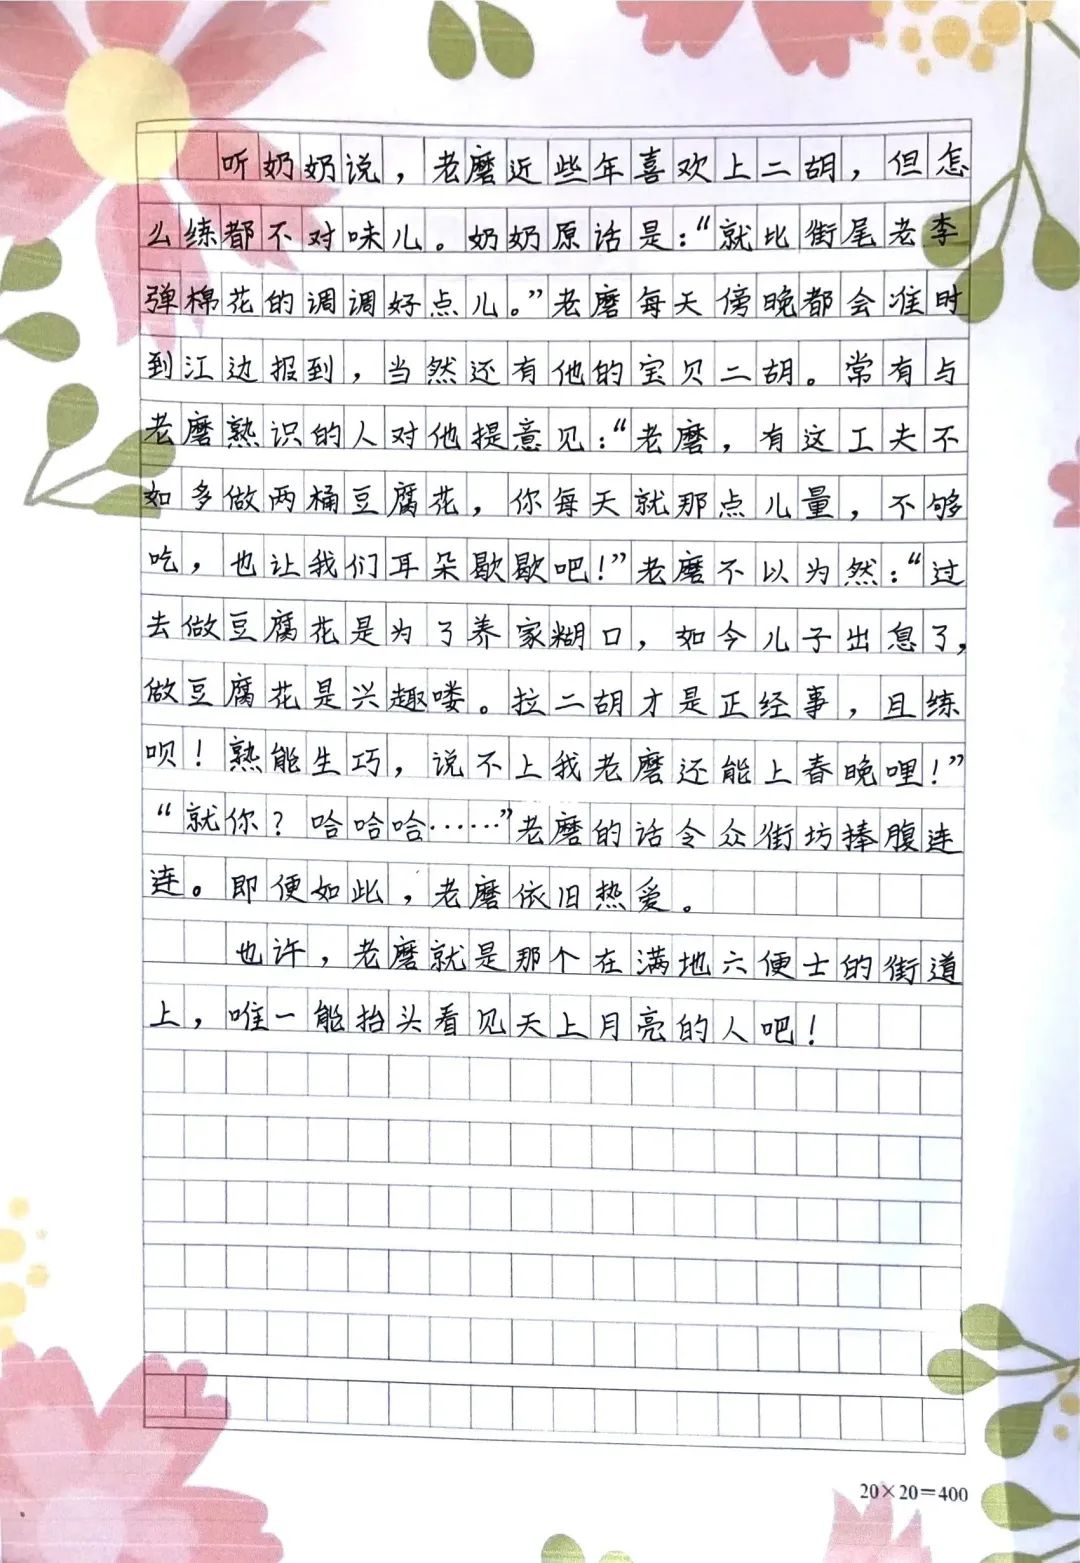 听奶奶说，老磨近些年喜欢上二胡，但怎
么练都不对味儿。奶奶原话是：“就比街尾老李
弹棉花的调调好点儿。”老磨每天傍晚都会准时
到江边报到，当然还有他的宝贝二胡。常有与
老磨熟识的人对他提意见：“老磨，有这工夫不
如多做两桶豆腐花，你每天就那点儿量，不够
吃，也让我们耳朵歇歇吧！”老磨不以为然：“过
去做豆腐花是为了养家糊口，如今儿子出息了，
做豆腐花是兴趣喽。拉二胡才是正经事，且练
呗！熟能生巧，说不上我老磨还能上春晚哩！”
“就你？哈哈哈……”老磨的话令众街坊捧腹连
连。即便如此，老磨依旧热爱。
也许，老磨就是那个在满地六便士的街道
上，唯一能抬头看见天上月亮的人吧！
20×20=400